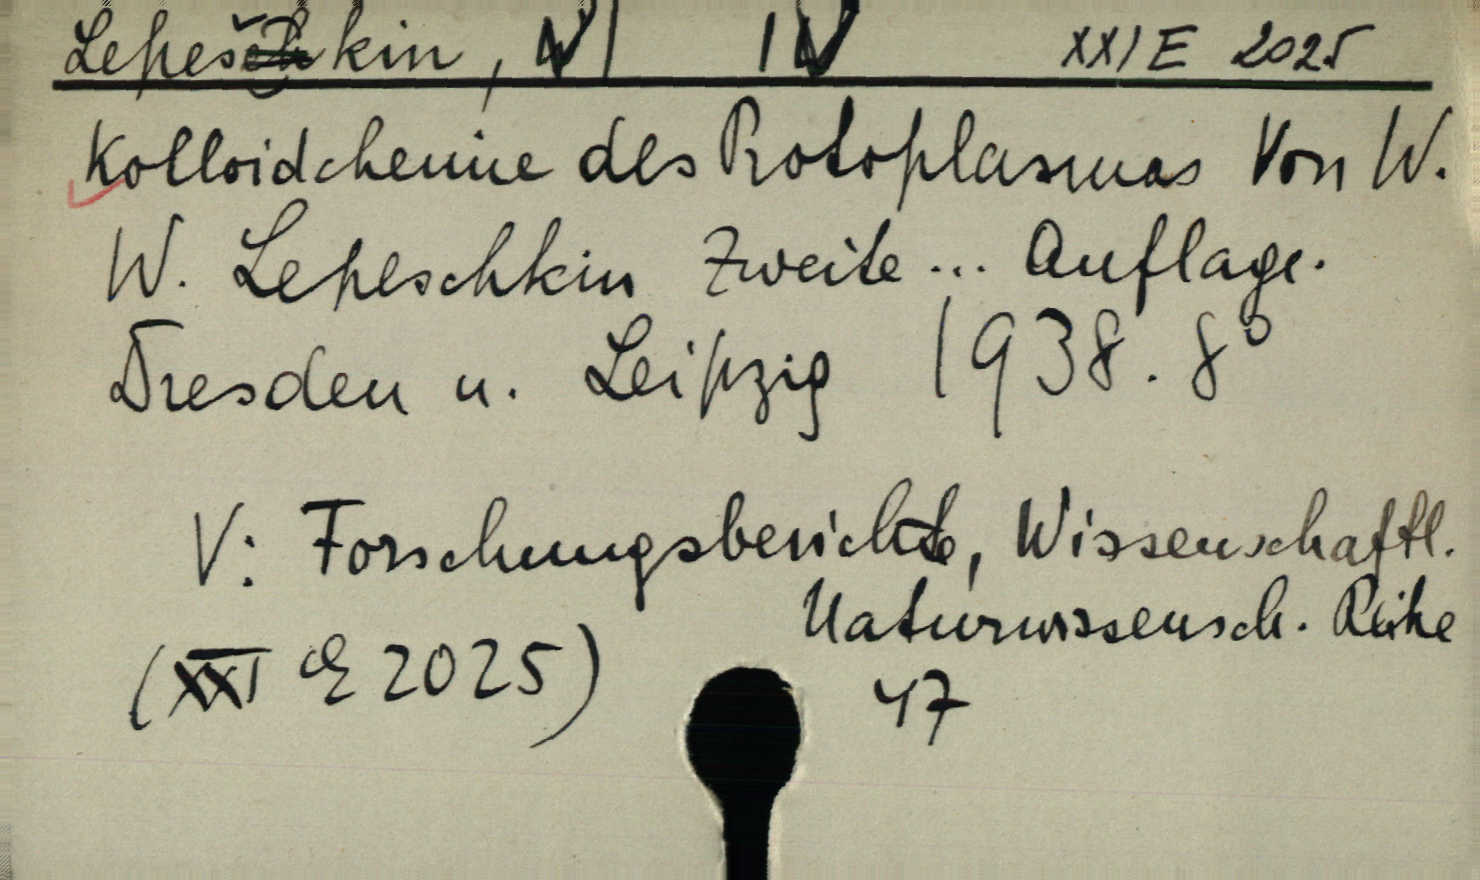 Lepeškin, W W XXI E 2025
Kolloidchemie des Protoplasmas Von W.
W. Lepeschkin Zweite ... Auflage.
Dresden u. Leipzig 1938. 8°
V: Forschungsberichte, Wissenschaftl.
Naturwissensch. Reihe
(XXI E 2025) 47